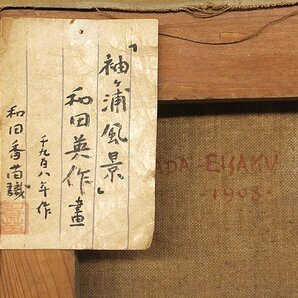 「袖ヶ浦風景」
和田英作畫
千九百八年作
和田香苗識
DA-EISAKU
1908.